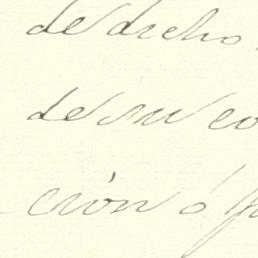 de dicho
de su co
ción ó